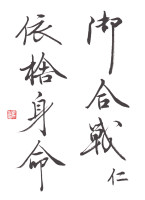 御合戦仁
依捨身命